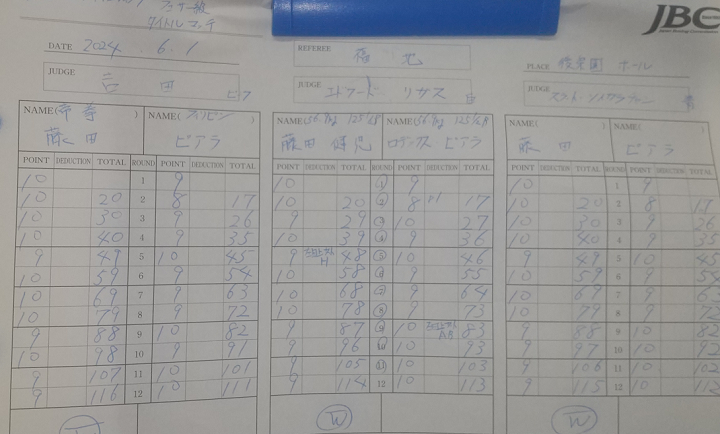 タイトルマッチ
JBC
DATE 2024.6.1
REFEREE 福地
PLACE 後楽園ホール
JUDGE 吉田 ピア
JUDGE エドワード リガス
JUDGE
NAME( ) NAME(フィリピン) NAME(56.8kg 125 1/4 NAME( NAME( ) NAME( )
藤田 ピアラ 藤田 ピアラ 藤田 ピアラ
POINT DEDUCTION TOTAL ROUND POINT DEDUCTION TOTAL POINT DEDUCTION TOTAL ROUND POINT DEDUCTION TOTAL POINT DEDUCTION TOTAL ROUND POINT DEDUCTION TOTAL
10 1 9 10 1 9 10 1 9
10 20 2 8 17 10 20 2 8 17 10 20 2 8 17
10 30 3 9 26 9 29 3 10 27 10 30 3 9 26
10 40 4 9 35 10 39 4 9 36 10 40 4 9 35
9 49 5 10 45 9 48 5 10 46 9 49 5 10 45
10 59 6 9 54 10 58 6 9 55 10 59 6 9 54
10 69 7 9 63 10 68 7 9 64 10 69 7 9 63
10 79 8 9 72 10 78 8 9 73 10 79 8 9 72
9 88 9 10 82 9 87 9 10 83 9 88 9 10 82
10 98 10 9 91 9 96 10 10 93 9 97 10 10 92
9 107 11 10 101 9 105 11 10 103 9 106 11 10 102
9 116 12 10 111 9 114 12 10 113 9 115 12 10 112
W W W